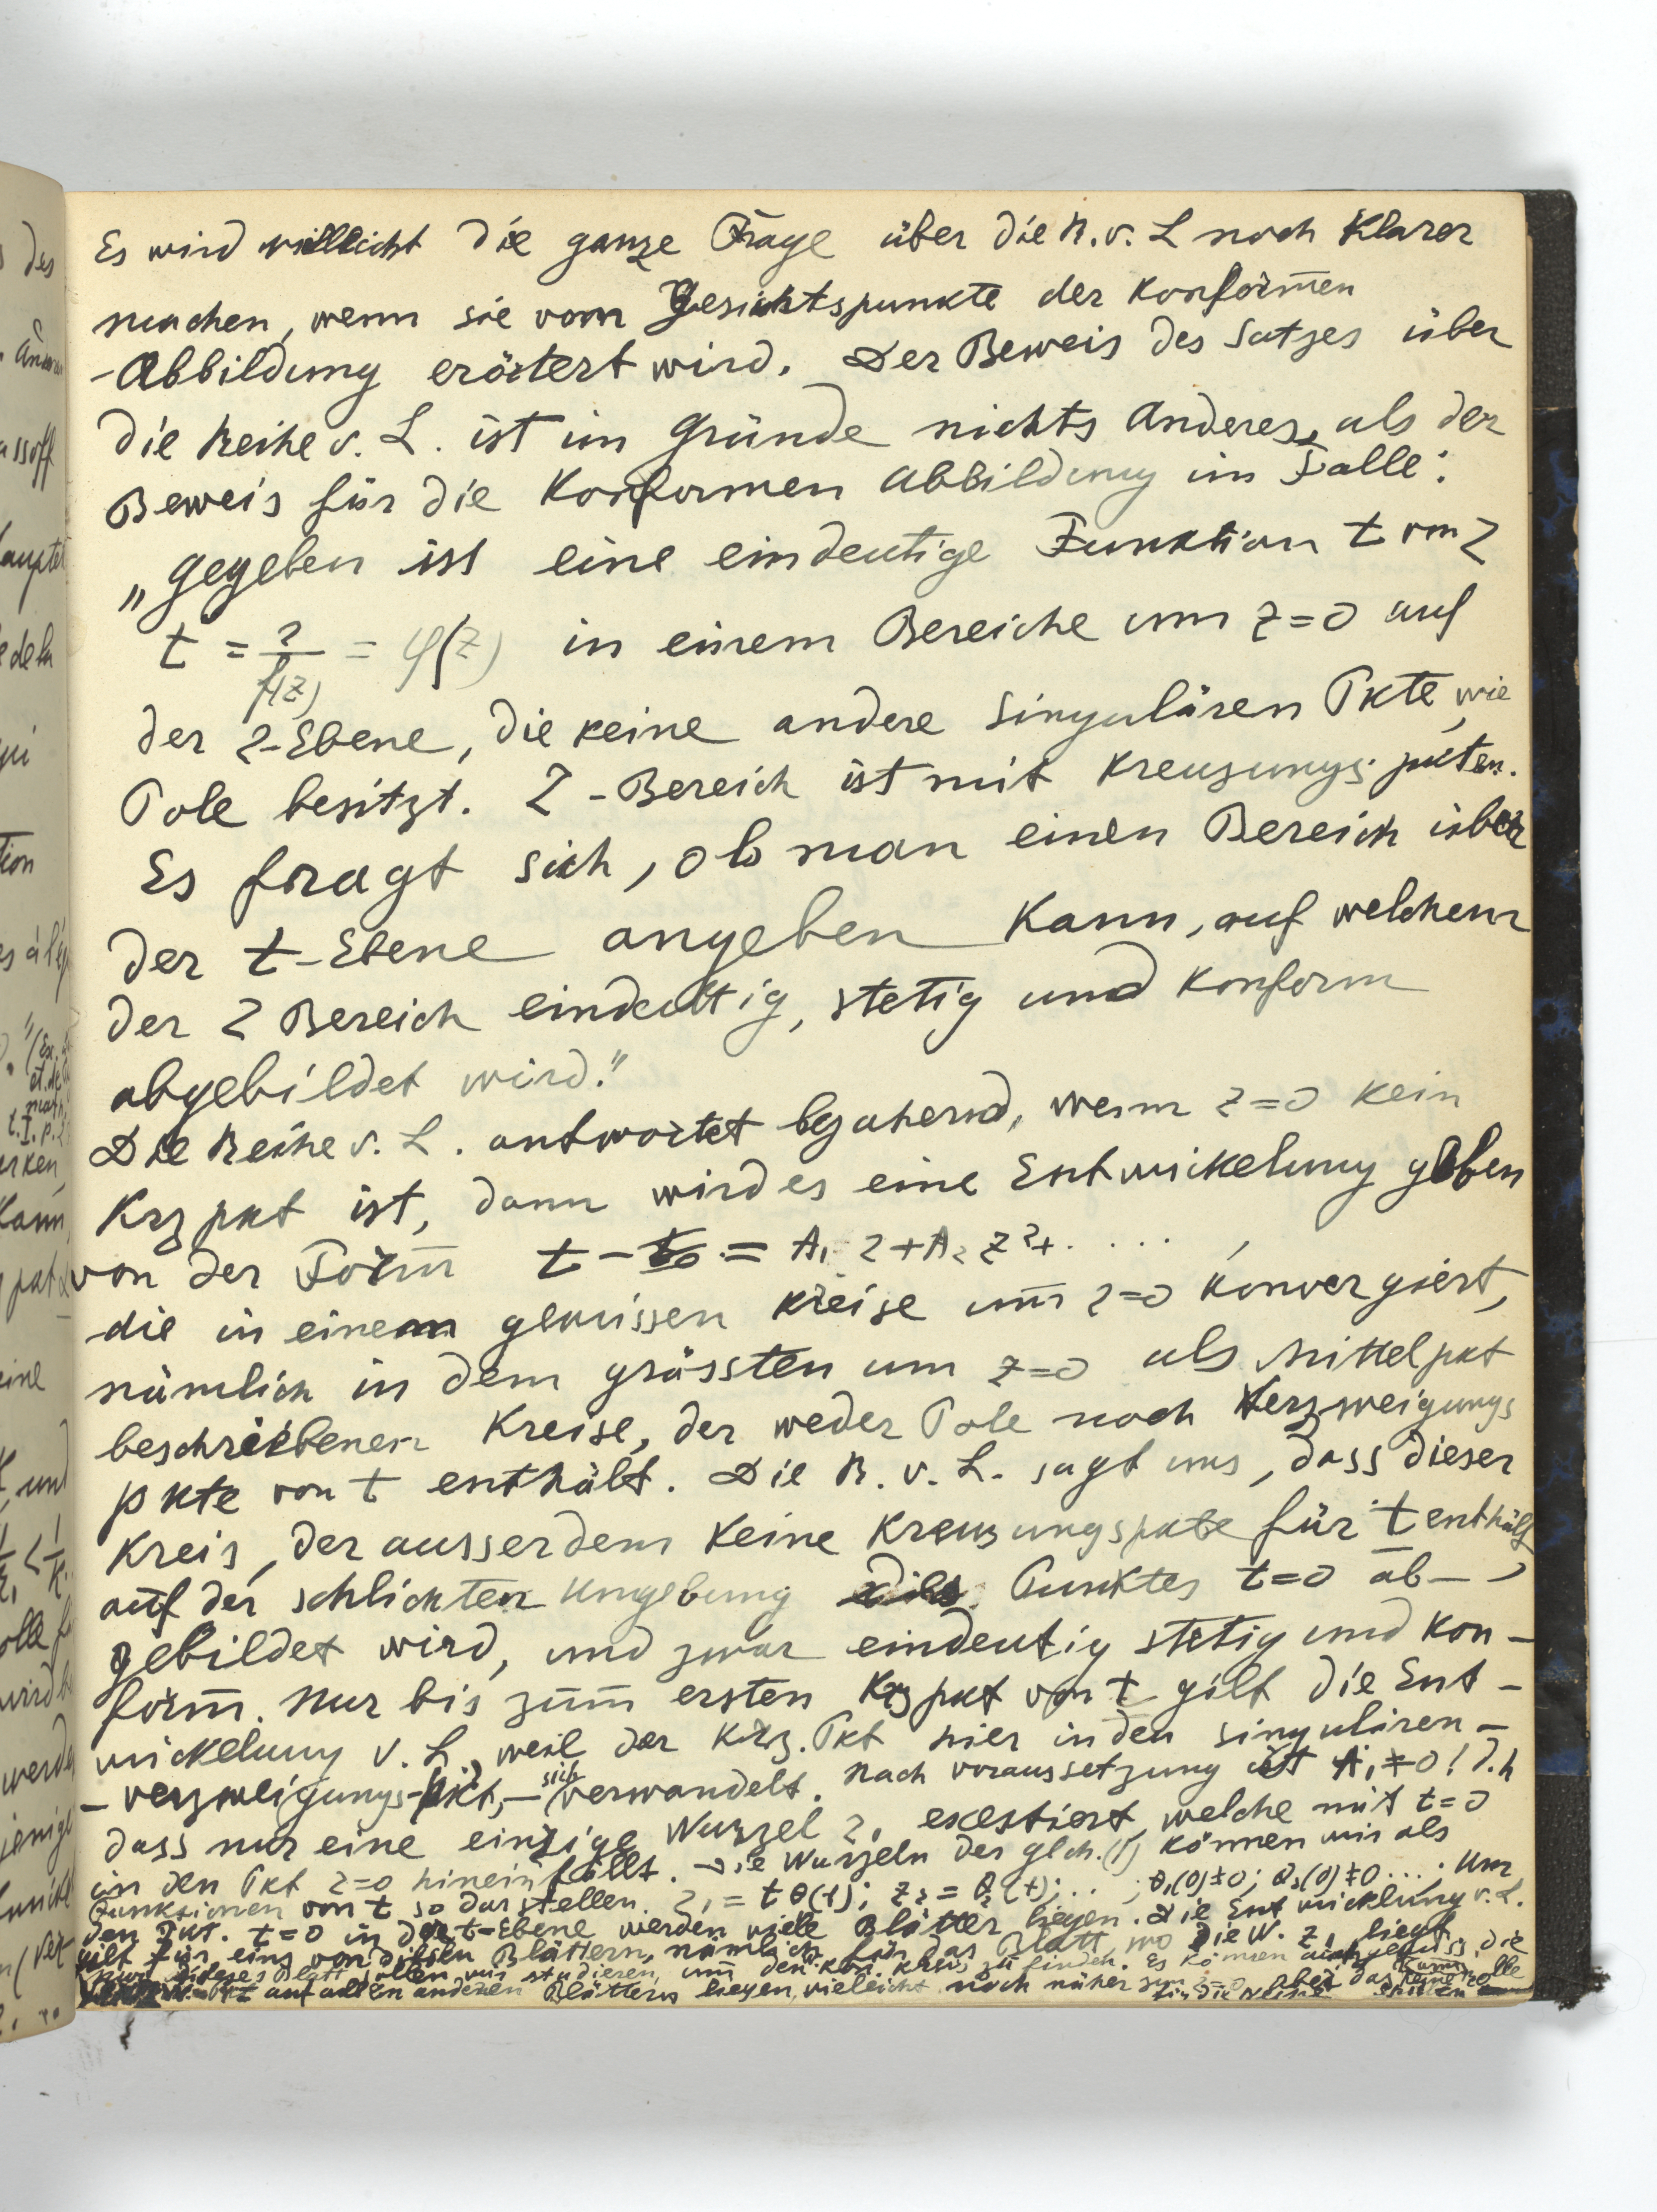 Es wird villeicht die ganze Frage über die R. v. L noch klarer
machen, wenn sie vom Gesichtspunkte der Konformen
-Abbildung erörtert wird. Der Beweis des Satzes über
die Reihe v. L. ist im Gründe nichts Anderes, als der
Beweis für die Konformen Abbildung im Falle:
„gegeben ist eine eindeutige Funktion t von z
t = z/f(z) = φ(z) in einem Bereiche um z=0 auf
der z-Ebene, die keine andere singulären Pkte, wie
Pole besitzt. z-Bereich ist mit Kreuzungspkten.
Es fragt sich, ob man einen Bereich über
der t-Ebene angeben kann, auf welchem
der z Bereich eindeutig, stetig und konform
abgebildet wird."
Die Reihe v. L. antwortet bejahend, wenn z=0 kein
Krz pkt ist, dann wird es eine Entwickelung geben
von der Form t - t₀ = A₁ z + A₂ z² + . . . . ,
die in einem gewissen Kreise um z=0 konvergiert,
nämlich in dem grössten um z=0 als Mittelpkt
beschriebenen Kreise, der weder Pole noch Verzweigungs
pkte von t enthält. Die R. v. L. sagt uns, dass dieser
Kreis, der ausserdem keine Kreuzungspkte für t enthält,
auf der schlichten Umgebung des Punktes t=0 ab-
gebildet wird, und zwar eindeutig stetig und kon-
form. Nur bis zum ersten Krz pkt von t gilt die Ent-
wickelung v. L, weil der Krz. Pkt hier in den singulären-
- verzweigungs-pkt, - sich verwandelt. Nach voraussetzung ist A₁ ≠ 0! d.h
dass nur eine einzige Wurzel z₁ existiert, welche mit t=0
in den Pkt z=0 hineinfällt. Die Wurzeln der glch. (1) können wir als
Funktionen von t so darstellen. z₁ = t θ(t); z₂ = θ₂(t); . . ; θ₁(0)≠0; θ₂(0)≠0 . . . ; Um
den Pkt. t=0 in der t-Ebene werden viele Blätter liegen. Die Entwicklung v. L.
gilt für eins von diesen Blättern, nämlich für das Blatt, wo die W. z₁ liegt
nur dieses Blatt sollen wir studieren, um den kon. kreis zu finden. Es können auch gewiss, die
auf allen anderen Blättern liegen, vieleicht noch näher zum z=0, aber das kann keine rolle
für die Reihe spielen